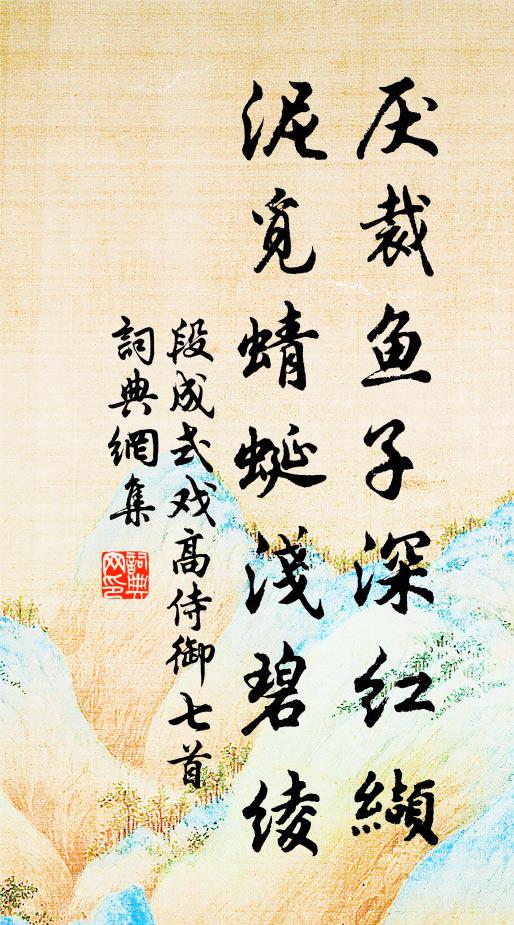 厌裁鱼子深红缬
泥觅蜻蜓淺碧绫
段成式戏高侍御七首
詞典網集
詞典
网印